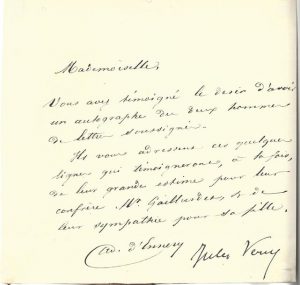 Mademoiselle,
Vous avez témoigné le désir d'avoir
un autographe des deux hommes
de lettre soussignés.
Ils vous adressent ces quelques
lignes qui témoignerons, à la fois,
de leur grande estime pour leur
confrère Mr. Gaillardet, et de
leur sympathie pour sa fille.
Ad. d'Ennery Jules Verne